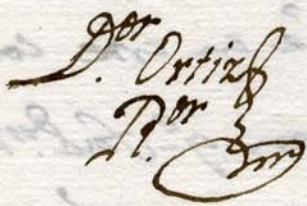 D.or Ortiz
R.or